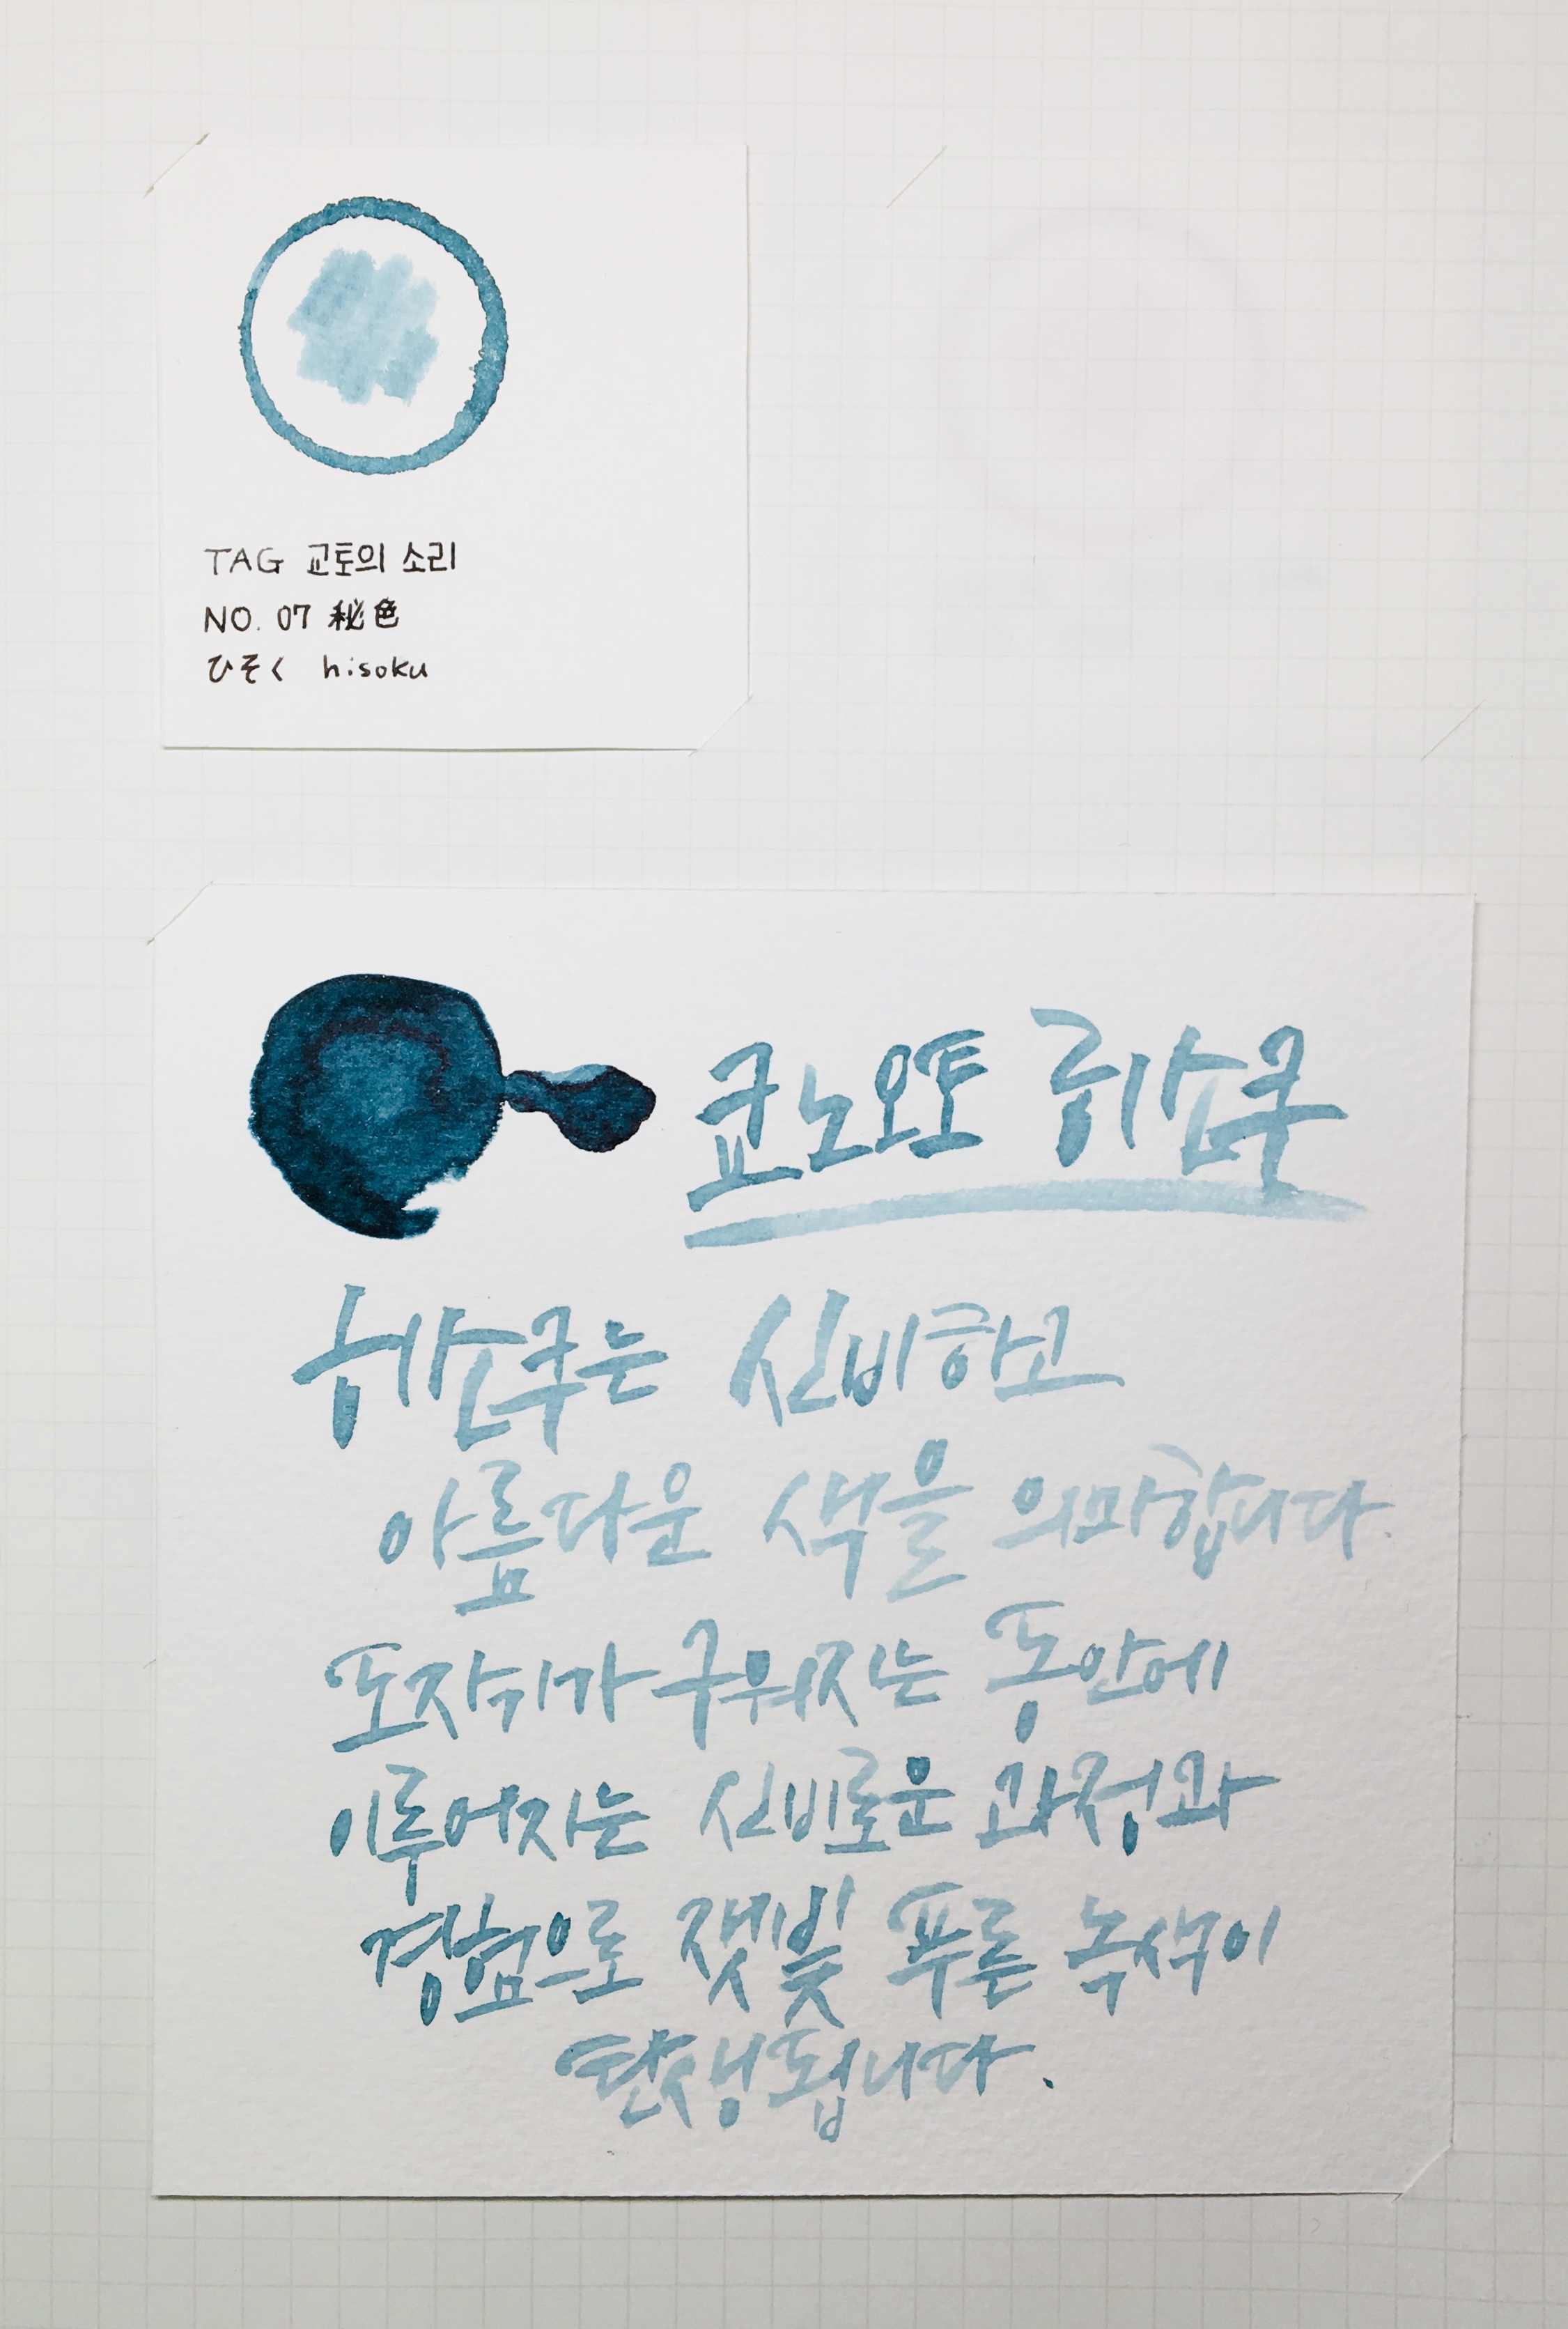 TAG 교토의 소리
NO. 07 秘色
ひそく hisoku
쿄노오토 히소쿠
히소쿠는 신비하고
아름다운 색을 의미합니다
도자기가 구워지는 동안에
이루어지는 신비로운 과정과
경험으로 잿빛 푸른 녹색이
탄생됩니다.